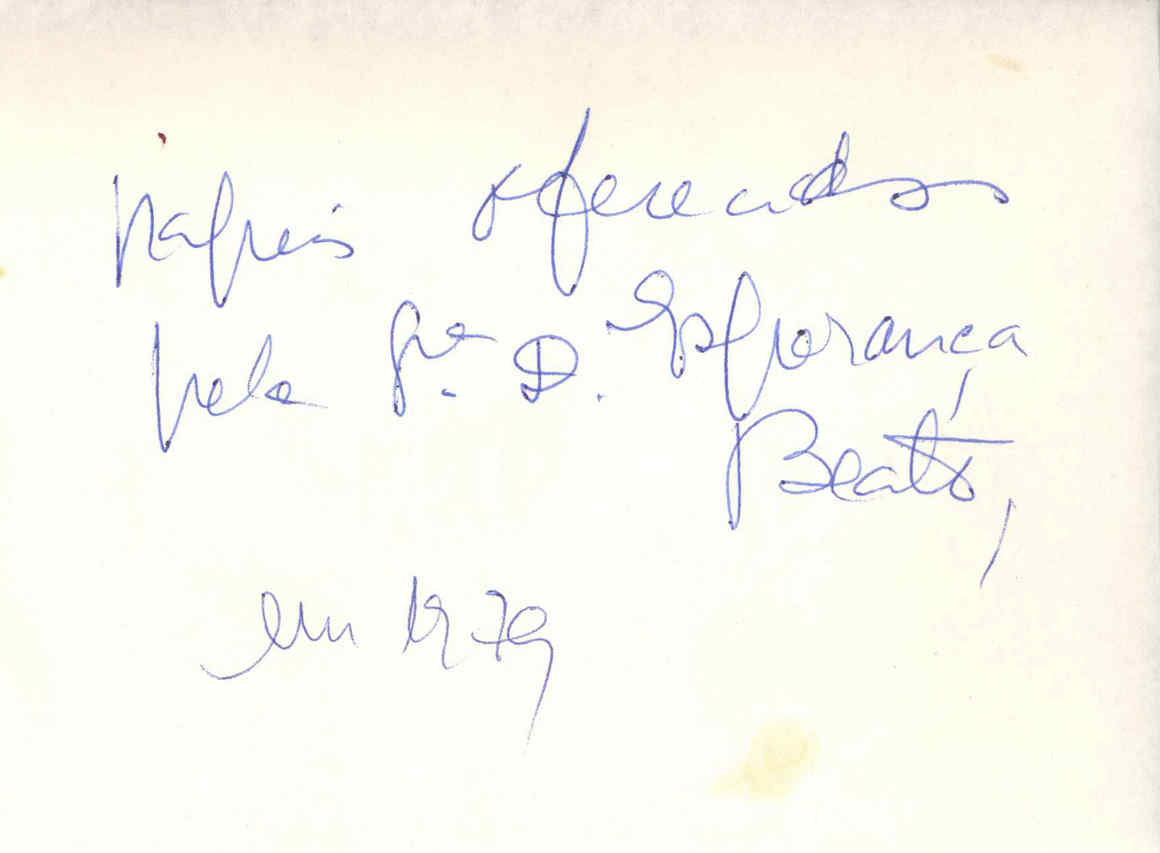 papeis oferecidos
pela Sra. D. Esperança
Beato,
em 1979